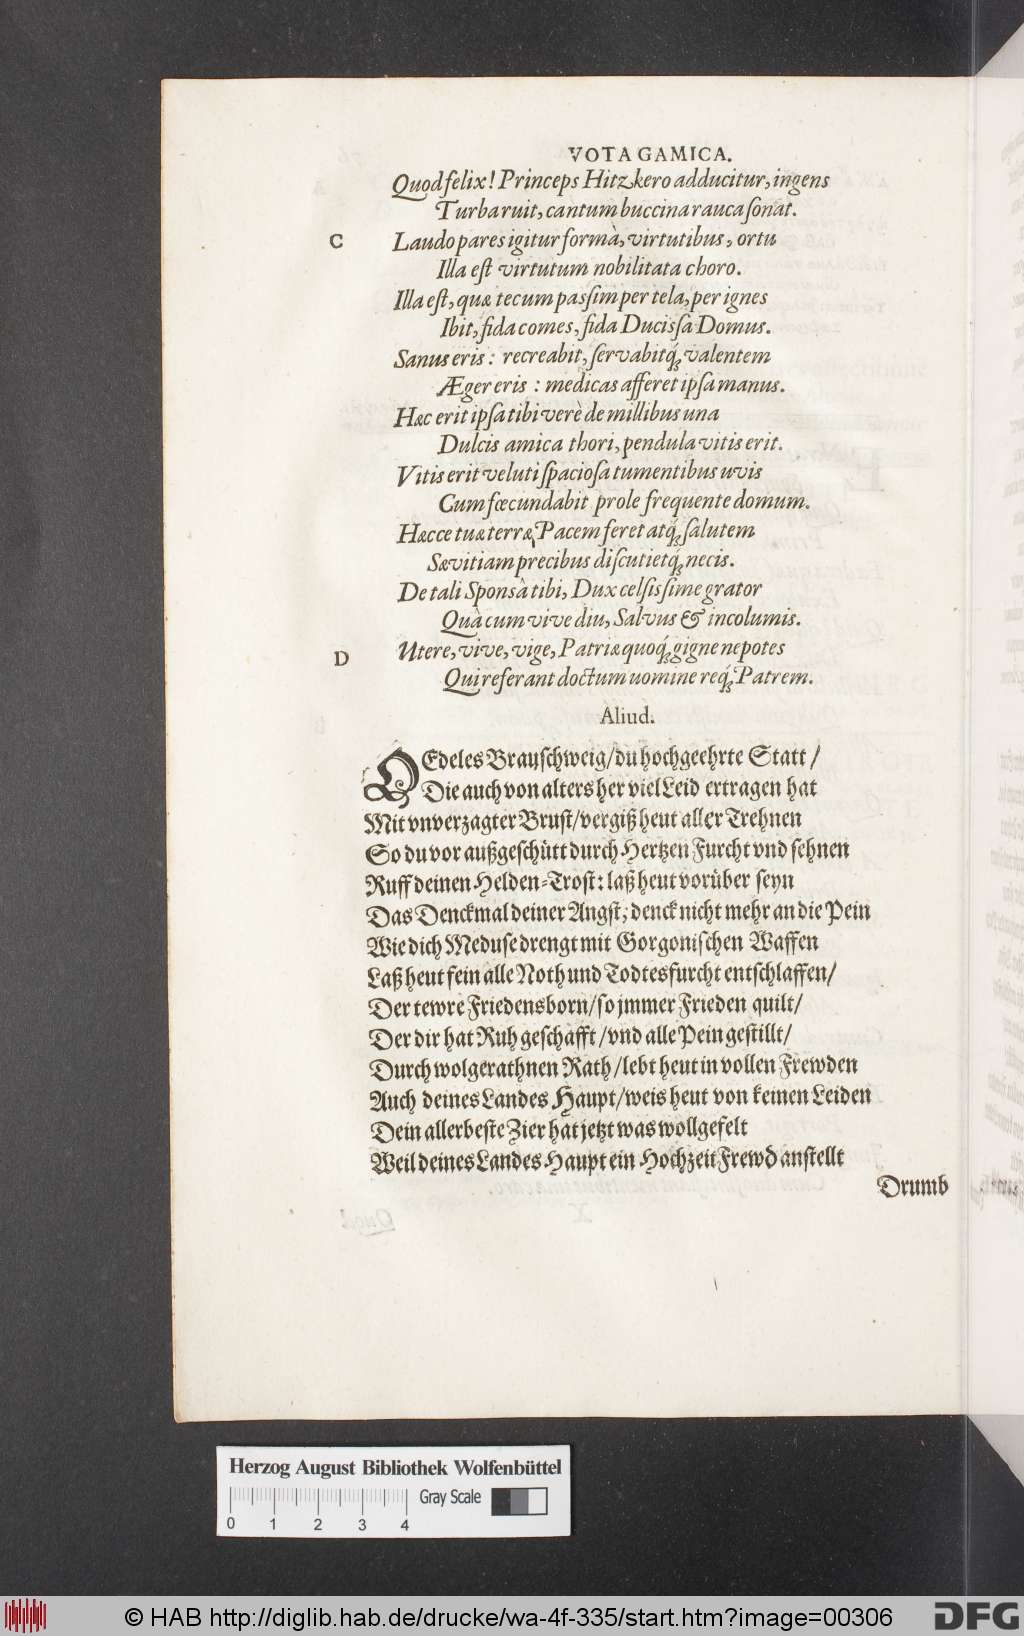 VOTA GAMICA.
Quod felix! Princeps Hitzkero adducitur, ingens
Turba ruit, cantum buccina rauca ſonat.
C
Laudo pares igitur formà, virtutibus, ortu
Illa eſt virtutum nobilitata choro.
Illa eſt, quæ tecum paſsim per tela, per ignes
Ibit, fida comes, fida Duciſsa Domus.
Sanus eris: recreabit, ſervabitq́; valentem
Æger eris: medicas afferet ipſa manus.
Hæc erit ipſa tibi verè de millibus una
Dulcis amica thori, pendula vitis erit.
Vitis erit veluti ſpacioſa tumentibus uvis
Cum fœcundabit prole frequente domum.
Hæcce tuæ terræ, Pacem feret atq́; ſalutem
Sævitiam precibus diſcutietq́; necis.
De tali Sponsâ tibi, Dux celſisſime grator
Quâ cum vive diu, Salvus & incolumis.
D
Utere, vive, vige, Patriæ quoq́; gigne nepotes
Qui referant doctum uomine req́; Patrem.
Aliud.
O Edeles Brauſchweig/ du hochgeehrte Statt/
Die auch von alters her viel Leid ertragen hat
Mit vnverzagter Bruſt/ vergiß heut aller Trehnen
So du vor außgeſchütt durch Hertzen Furcht vnd ſehnen
Ruff deinen Helden-Troſt: laß heut vorüber ſeyn
Das Denckmal deiner Angſt; denck nicht mehr an die Pein
Wie dich Meduſe drengt mit Gorgoniſchen Waffen
Laß heut fein alle Noth und Todtesfurcht entſchlaffen/
Der tewre Friedensborn/ ſo jmmer Frieden quilt/
Der dir hat Ruh geſchafft/ vnd alle Pein geſtillt/
Durch wolgerathnen Rath/ lebt heut in vollen Frewden
Auch deines Landes Haupt/ weis heut von keinen Leiden
Dein allerbeſte Zier hat jetzt was wollgefelt
Weil deines Landes Haupt ein Hochzeit Frewd anſtellt
Drumb
Herzog August Bibliothek Wolfenbüttel
Gray Scale
0 1 2 3 4
© HAB http://diglib.hab.de/drucke/wa-4f-335/start.htm?image=00306
DFG